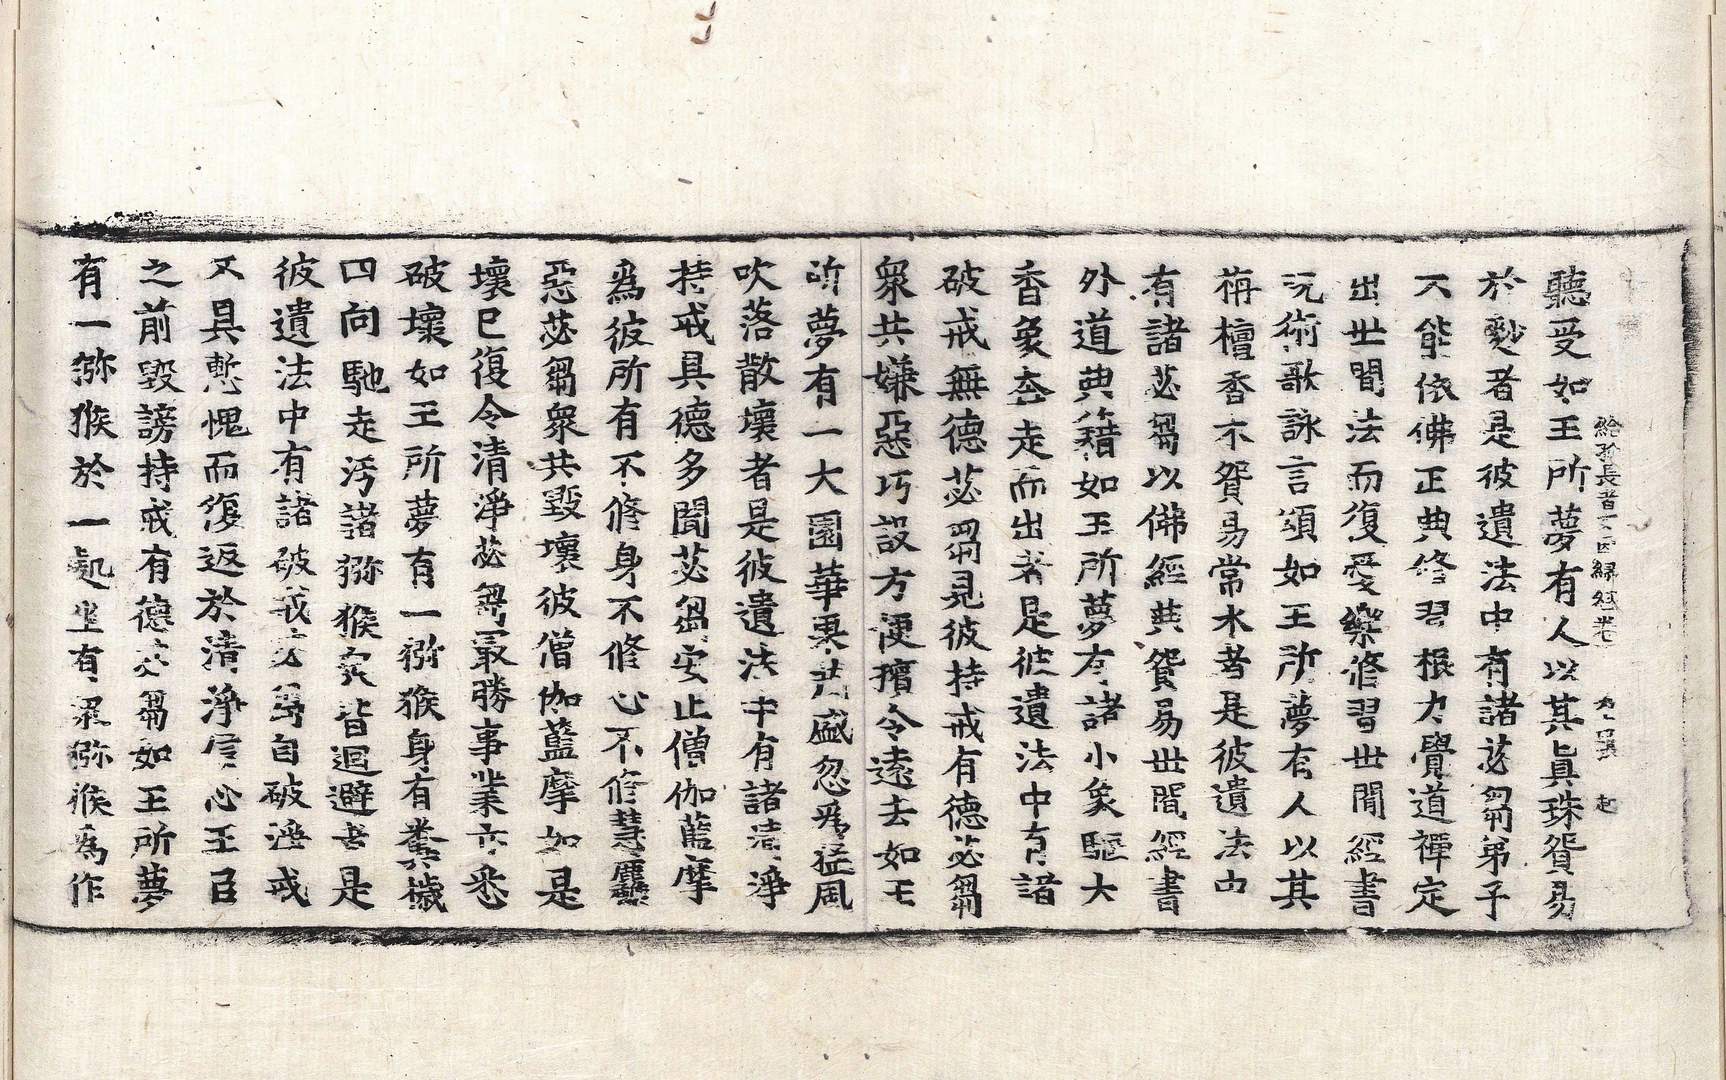 聽受如王所夢有人以其眞珠貿易
給孤長者女因緣經卷
於麨者是彼遺法中有諸苾芻弟子
不能依佛正典修習根力覺道禪定
出世間法而復愛樂修習世間經書
咒術歌詠言頌如王所夢有人以其
栴檀香木貿易常木者是彼遺法中
有諸苾芻以佛經典貿易世間經書
外道典籍如王所夢有諸小象驅大
香象奔走而出者是彼遺法中有諸
破戒無德苾芻見彼持戒有德苾芻
衆共嫌惡巧設方便擯令遠去如王
所夢有一大園華果茂盛忽爲猛風
吹落散壞者是彼遺法中有諸清淨
持戒具德多聞苾芻安止僧伽藍摩
爲彼所有不修身不修心不修慧麤
惡苾芻衆共毀壞彼僧伽藍摩如是
壞已復令清淨苾芻最勝事業亦悉
破壞如王所夢有一獼猴身有糞穢
四向馳走污諸獼猴衆皆迴避者是
彼遺法中有諸破戒苾芻自破淨戒
不具慙愧而復返於清淨信心王臣
之前毀謗持戒有德苾芻如王所夢
有一獼猴於一處坐有衆獼猴爲作